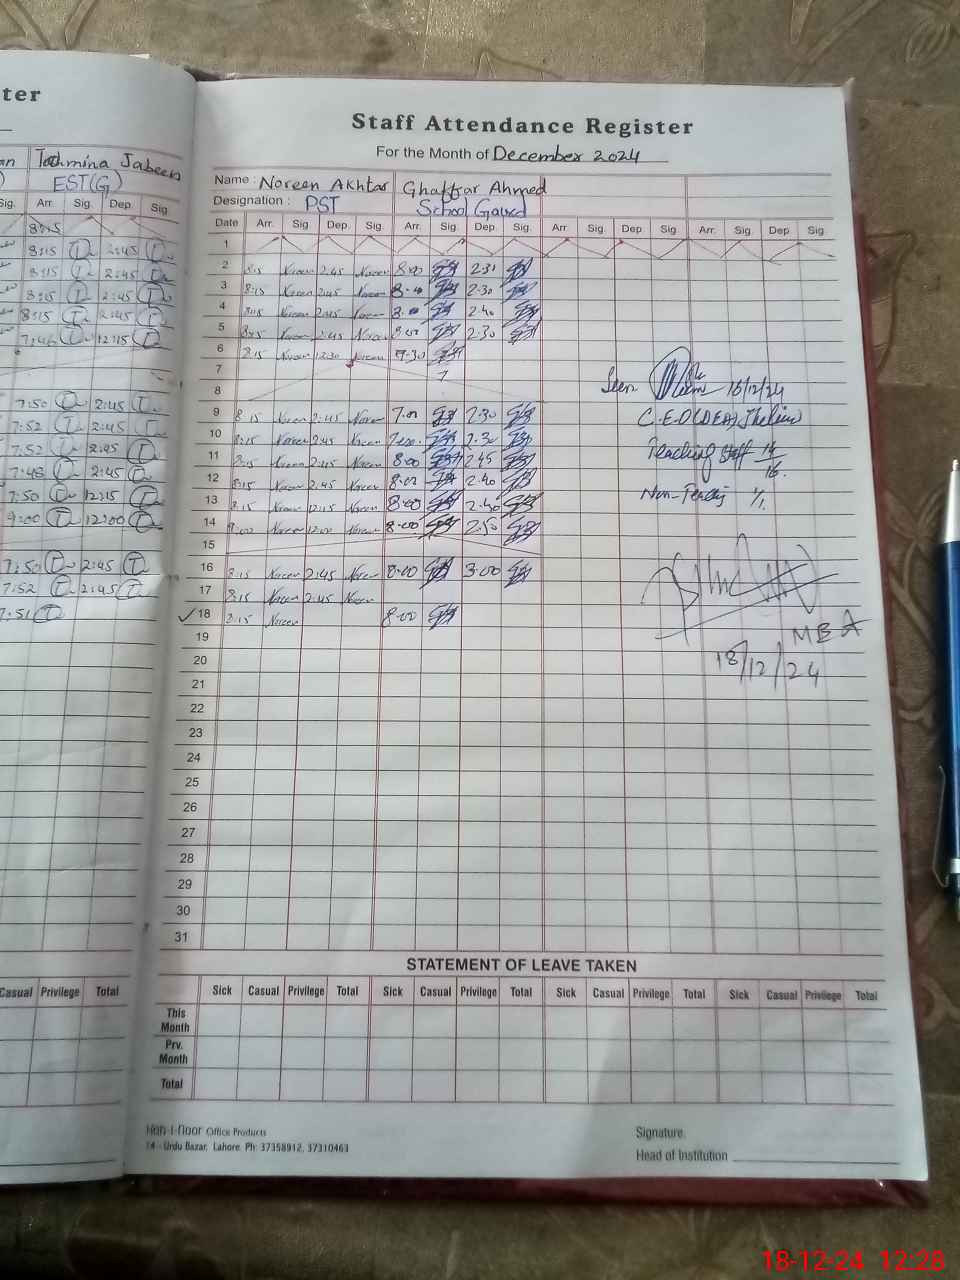 ter
Tachmina Jabeen
EST(G)
Sig. Arr. Sig. Dep. Sig.
8:15
8:15 2:45
8:15 2:45
8:15 2:45
8:15 2:45
7:46 12:15
7:50 2:45
7:52 2:45
7:52 2:45
7:48 2:45
7:50 12:15
9:00 12:00
7:50 2:45
7:52 2:45
7:51
Casual Privilege Total
Staff Attendance Register
For the Month of December 2024
Name : Noreen Akhtar Ghaffar Ahmed
Designation : PST School Gaurd
Date Arr. Sig. Dep. Sig. Arr. Sig. Dep. Sig. Arr. Sig. Dep. Sig. Arr. Sig. Dep Sig.
1
2 8:15 Noreen 2:45 Noreen 8:00 2:31
3 8:15 Noreen 2:45 Noreen 2:30
4 8:15 Noreen 2:45 Noreen 2:40
5 8:15 Noreen 2:45 Noreen 8:00 2:30
6 8:15 Noreen 12:30 Noreen 9:30
7
8
9 8:15 Noreen 2:45 Noreen 7:00 2:30
10 8:15 Noreen 2:45 Noreen 7:00 2:30
11 8:15 Noreen 2:45 Noreen 8:00 2:45
12 8:15 Noreen 2:45 Noreen 8:00 2:40
13 8:15 Noreen 12:15 Noreen 8:00 2:40
14 9:00 Noreen 12:00 Noreen 8:00 2:50
15
16 8:15 Noreen 2:45 Noreen 8:00 3:00
17 8:15 Noreen 2:45 Noreen
18 8:15 Noreen 8:00
19
20
21
22
23
24
25
26
27
28
29
30
31
Seen 16/12/24
C.E.O (DEA) Jhelum
Teaching Staff 14/16
Non-Teaching 1/1
MEA
18/12/24
STATEMENT OF LEAVE TAKEN
Sick Casual Privilege Total Sick Casual Privilege Total Sick Casual Privilege Total Sick Casual Privilege Total
This Month
Prv. Month
Total
Hoh-I-Noor Office Products
14 - Urdu Bazar, Lahore. Ph: 37358912, 37310463
Signature.
Head of Institution
18-12-24 12:28